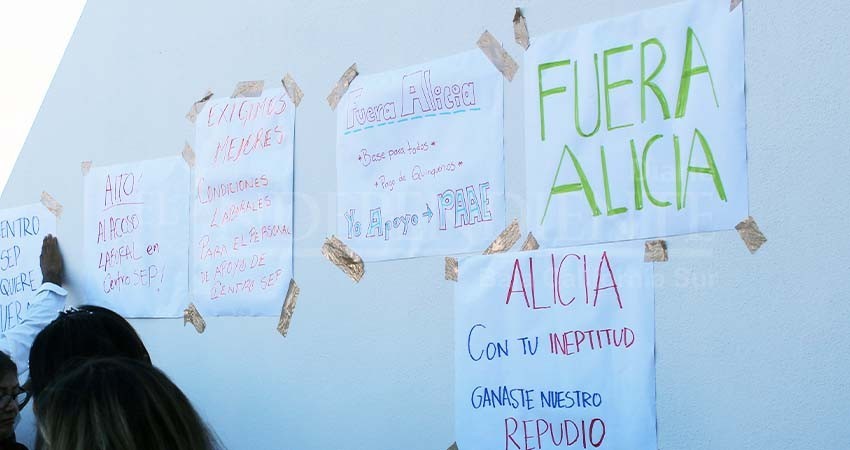 CENTRO
SEP
QUIERE
FUERA
ALTO!
AL ACOSO
LABORAL en
Centro SEP!
EXIGIMOS
MEJORES
CONDICIONES
LABORALES
PARA EL PERSONAL
DE APOYO DE
CENTRO SEP
Fuera Alicia
*Base para todos
*Pago de Quinquenios
Yo Apoyo → PAAE
FUERA
ALICIA
ALICIA
CON TU INEPTITUD
GANASTE NUESTRO
REPUDIO
EL INDEPENDIENTE
Baja California Sur